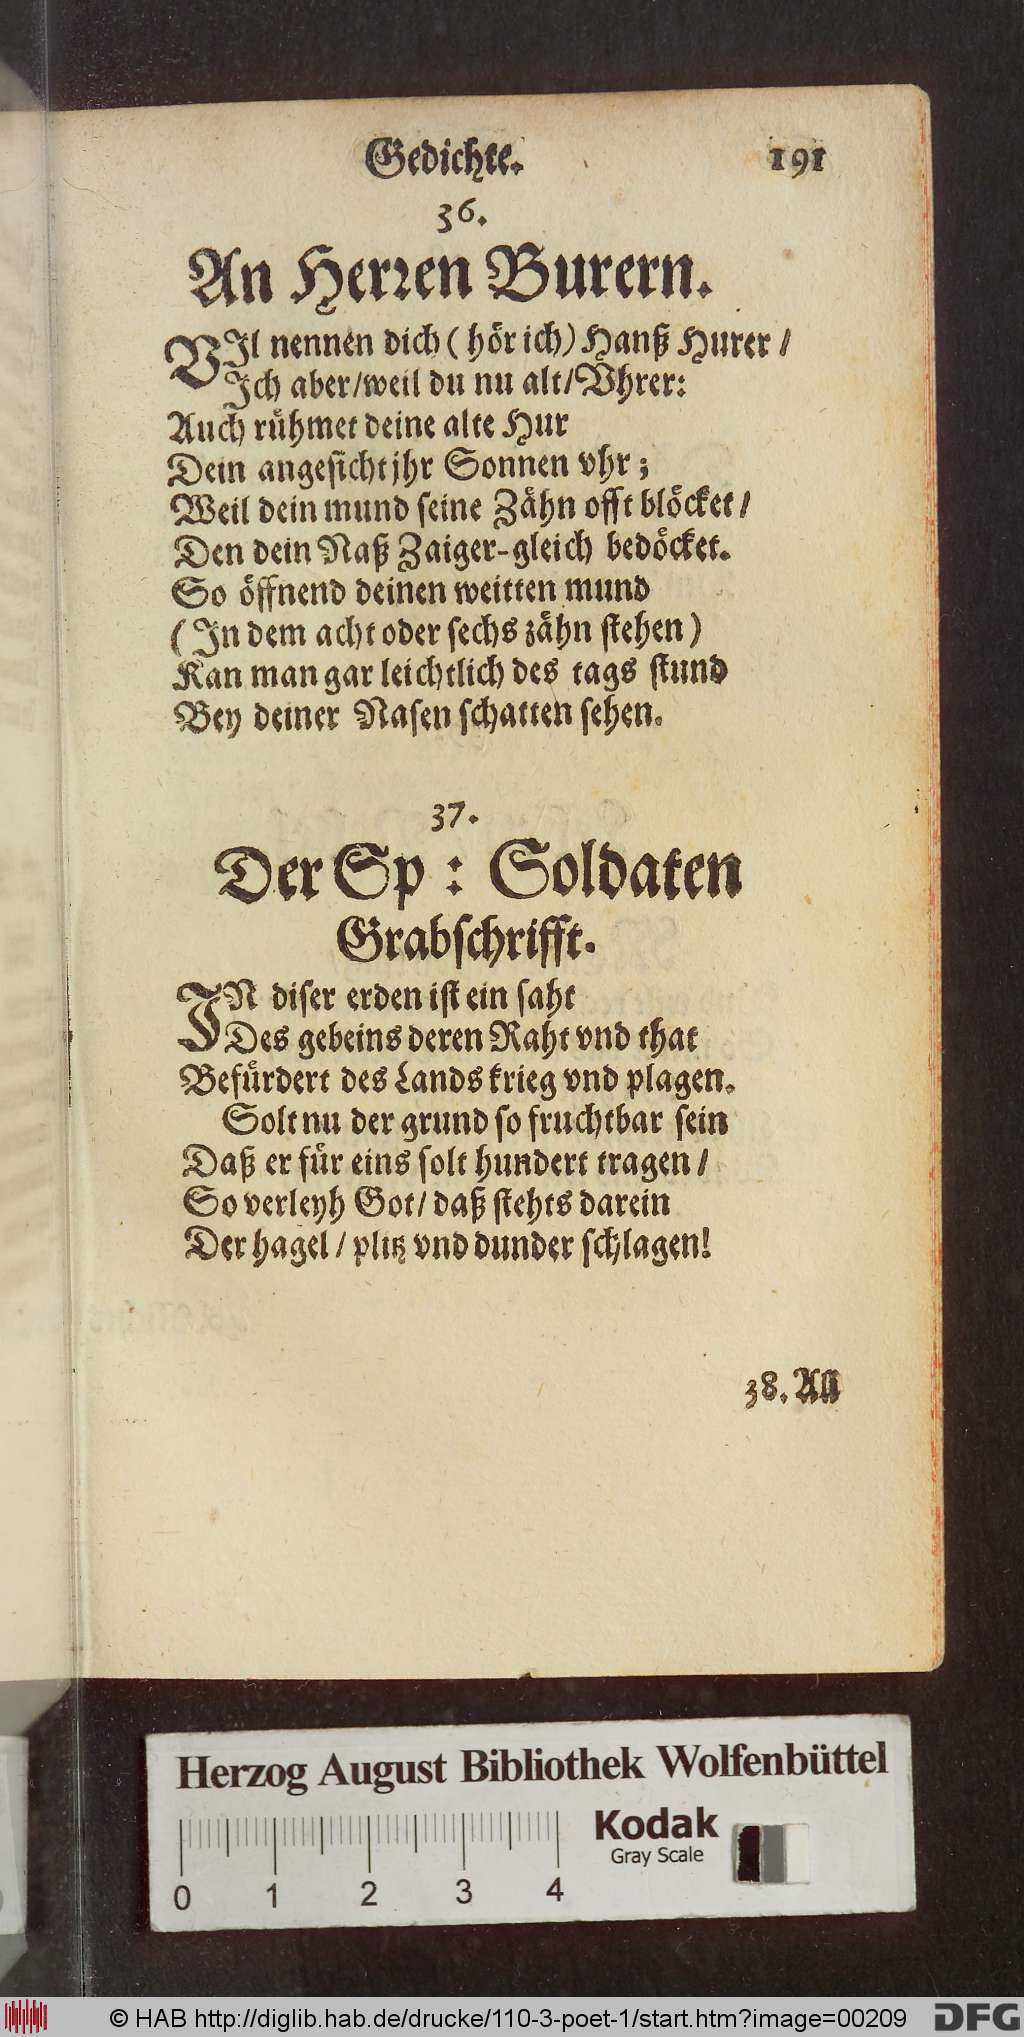 Gedichte. 191
36.
An Herren Burern.
VIl nennen dich ( hör ich) Hanß Hurer /
Ich aber/weil du nu alt/Vhrer:
Auch rühmet deine alte Hur
Dein angesicht jhr Sonnen vhr ;
Weil dein mund seine Zähn offt blöcket /
Den dein Naß Zaiger-gleich bedöcket.
So öffnend deinen weitten mund
( In dem acht oder sechs zähn stehen )
Kan man gar leichtlich des tags stund
Bey deiner Nasen schatten sehen.
37.
Der Sp : Soldaten
Grabschrifft.
IN diser erden ist ein saht
Des gebeins deren Raht vnd that
Befürdert des Lands krieg vnd plagen.
Solt nu der grund so fruchtbar sein
Daß er für eins solt hundert tragen /
So verleyh Got/ daß stehts darein
Der hagel / plitz vnd dunder schlagen!
38. All
Herzog August Bibliothek Wolfenbüttel
Kodak
Gray Scale
0 1 2 3 4
© HAB http://diglib.hab.de/drucke/110-3-poet-1/start.htm?image=00209 DFG